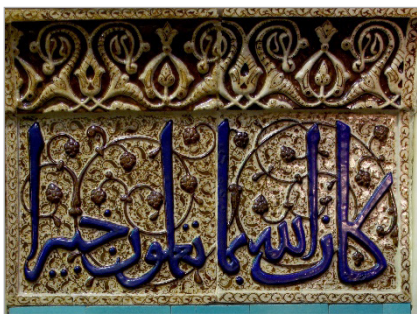 كان الله بما تعملون خبيرا